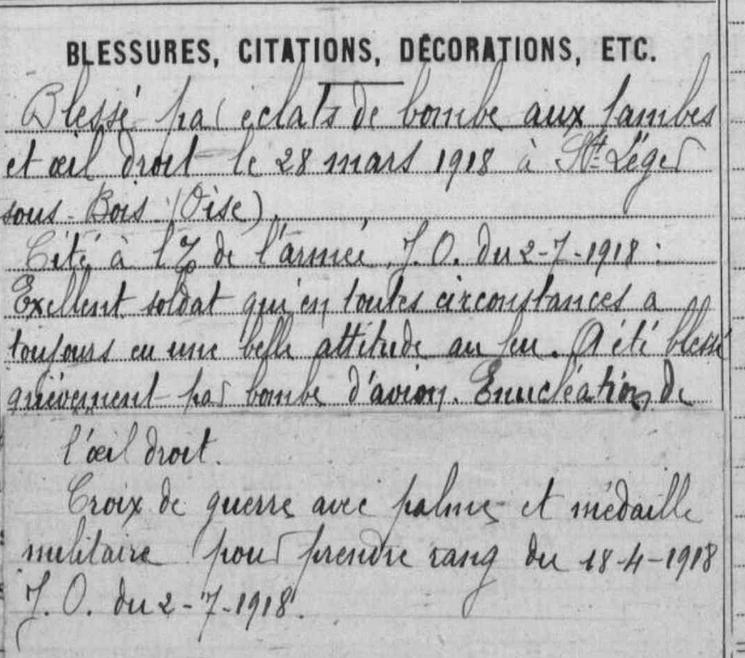 BLESSURES, CITATIONS, DÉCORATIONS, ETC.
Blessé par éclats de bombe aux jambes
et œil droit le 28 mars 1918 à St Léger
sous-Bois (Oise).
Cité à l' de l'armée, J. O. du 2-7-1918 :
Exellent soldat qui en toutes circonstances a
toujours eu une belle attitude au feu. A été blessé
grièvement par bombe d'avion. Enucléation de
l'œil droit.
Croix de guerre avec palme et médaille
militaire pour prendre rang du 18-4-1918
J. O. du 2-7-1918.